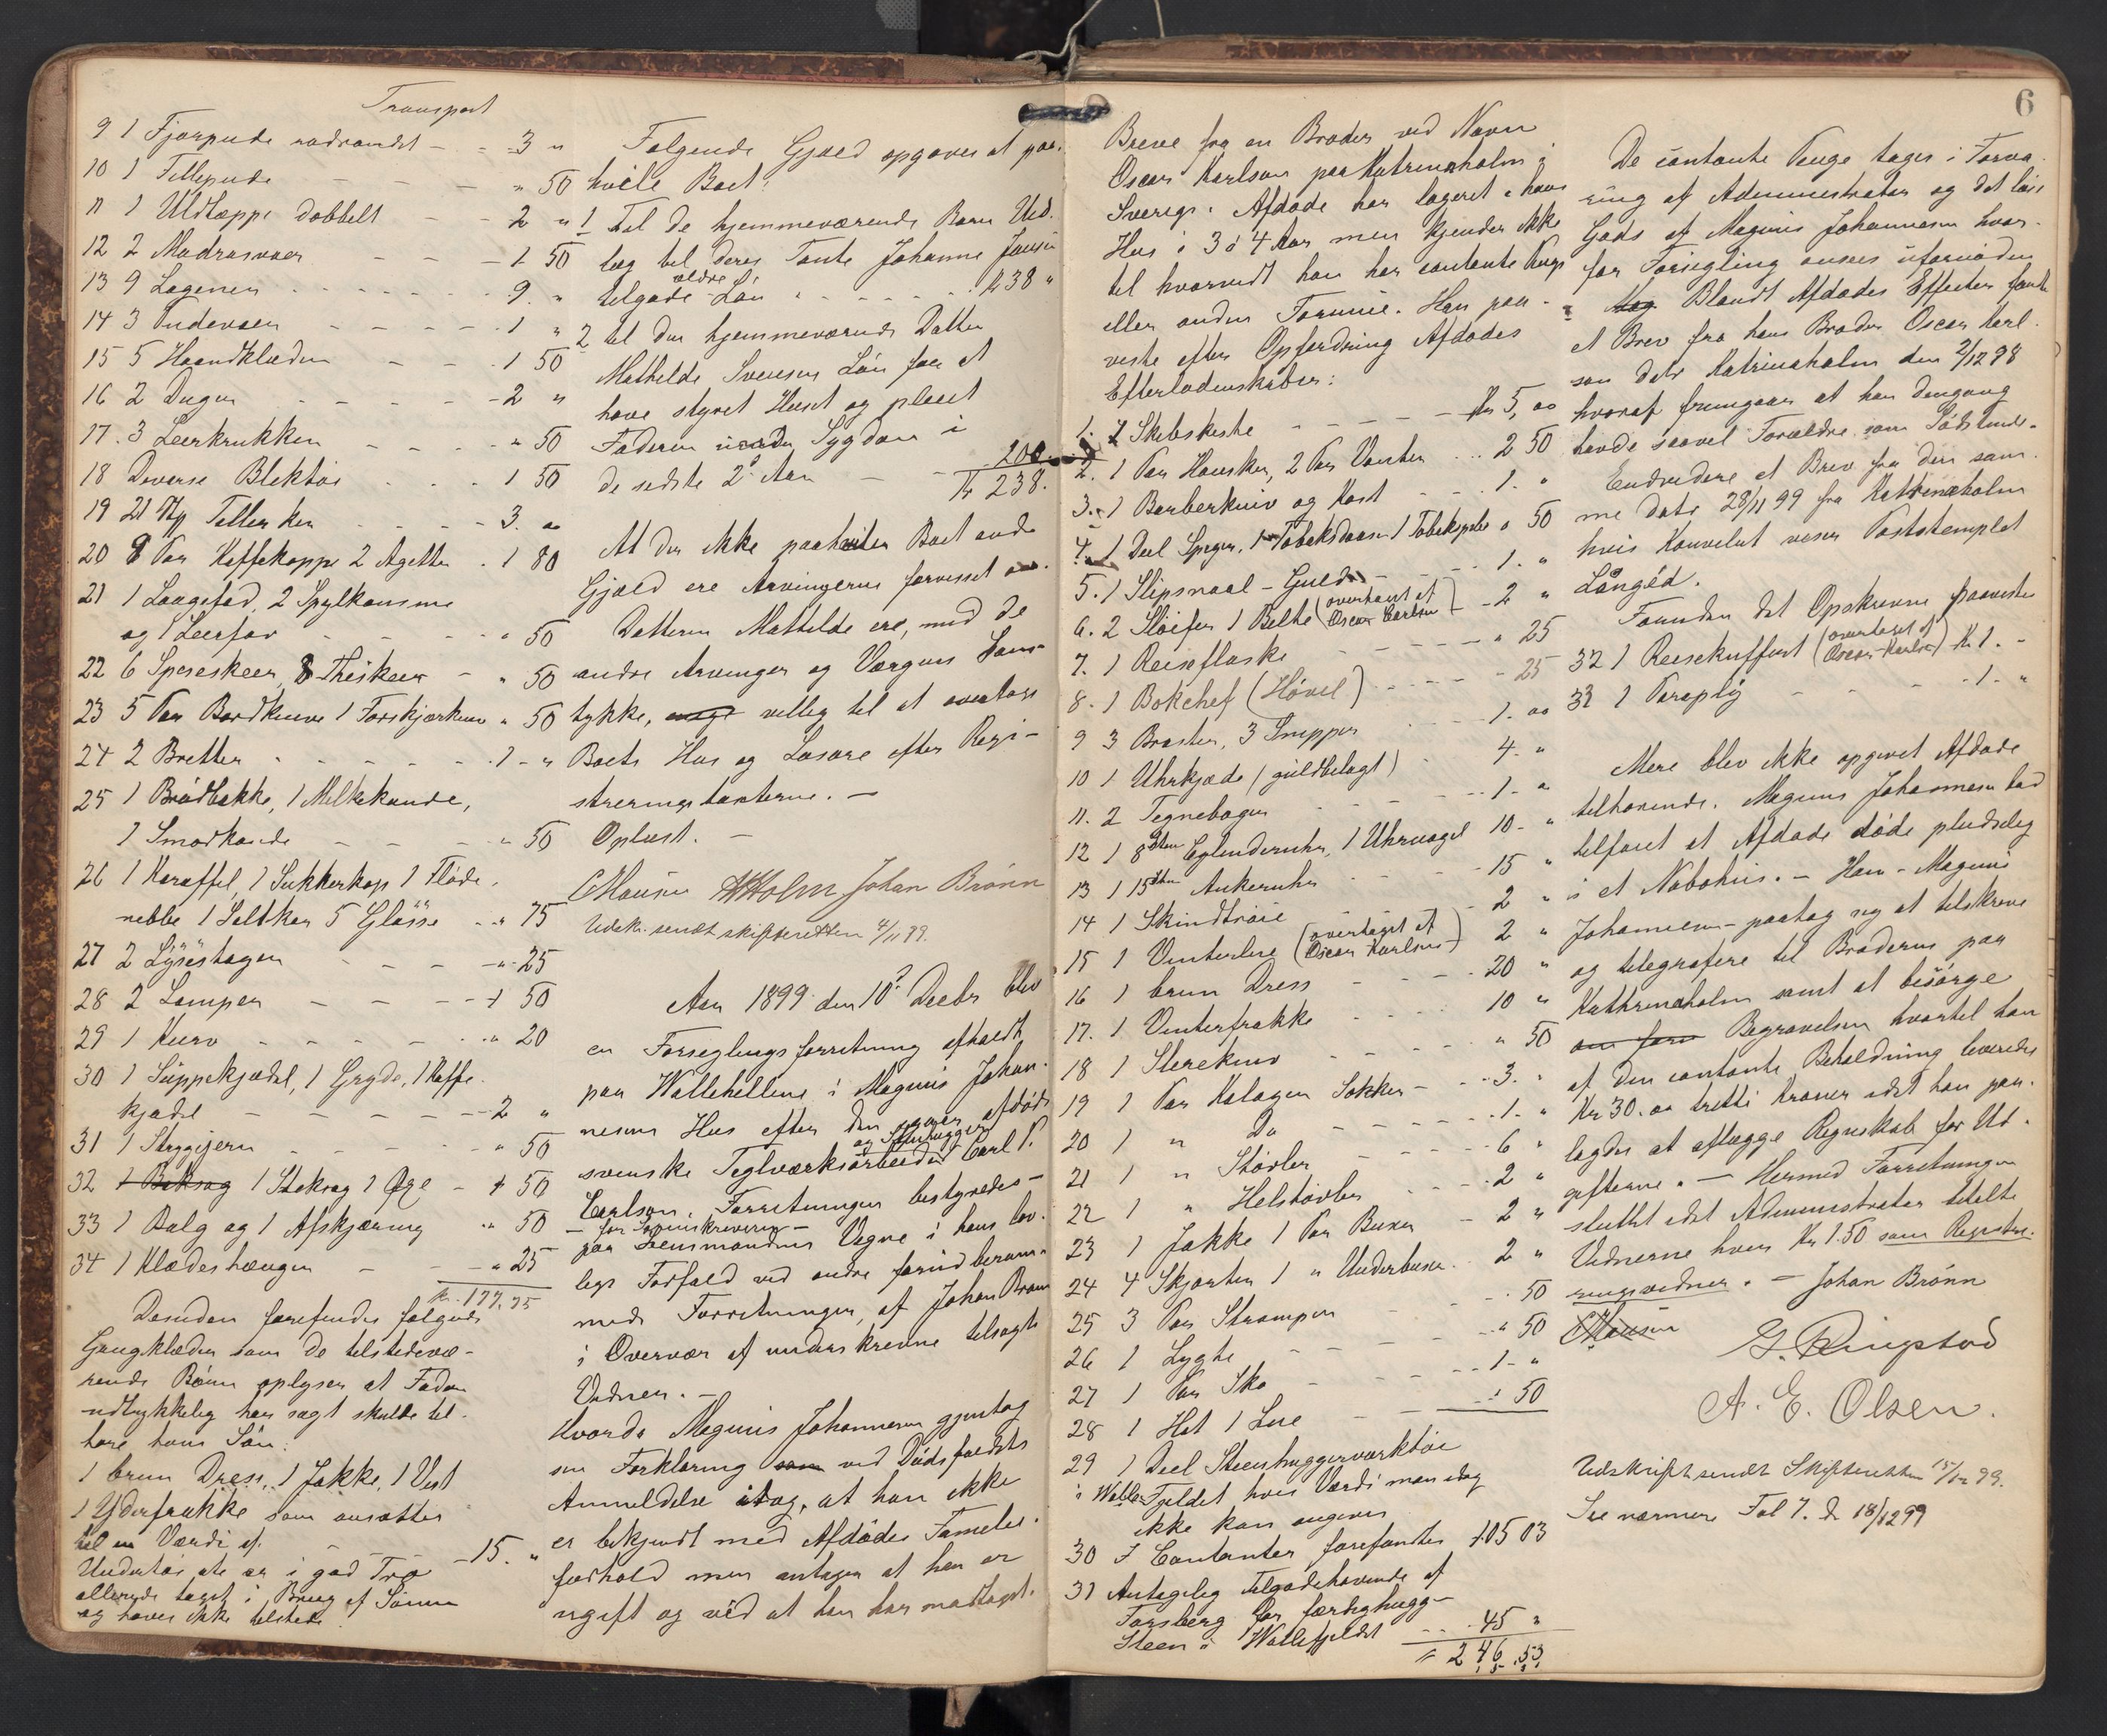 Transport
9 1 Fjærpude rødrandet - - 3 "
10 1 Fillepude - - - " 50
11 1 Uldtæppe dobbelt - - 2 "
12 2 Madrasvaer - - - 1 50
13 9 Lagener - - - - - 9. "
14 3 Pudevaer - - - - 1 "
15 5 Haandklæder - - - 1 50
16 2 Duger - - - - - 2 "
17. 3 Leerkrukker - - - - " 50
18 Diverse Bliktøi - - - 1 50
19 21 Tallerker - - - - 3. "
20 8 Par Kaffekopper 2 Agetter . 1 80
21 1 Laagefad, 2 Spylkommer
og 1 Leerfad - - - - " 50
22 6 Speseskeer, 8 Theskeer - " 50
23 5 Par Bordknive 1 Forskjærkniv " 50
24 2 Bretter - - - - - - 1 - "
25 1 Brødbakke, 1 Melkekande,
1 Smørkande - - - - " 50
26 1 Karaffel, 1 Sukkerkop 1 Fløde-
nebbe 1 Saltkar 5 Glasse - - " 75
27 2 Lysestager - - - - " 25
28 2 Lamper - - - - 1 50
29 1 Kurv - - - - - - " 20
30 1 Suppekjædel, 1 Gryde, 1 Kaffe-
kjædel - - - - - - 2 "
31 1 Strygejern - - - - - " 50
32 1 Baksag 1 Stoksag 1 Øxe - 1 50
33 1 Balg og 1 Afskjæring " 50
34 1 Klædeshænger - - - " 25
Kr. 177,75
Desuden forefindes følgende
Gangklæder som de tilstedevæ-
rende Børn oplyser at Faderen
udtrykkelig har sagt skulde til-
høre hans Søn:
1 brun Dress, 1 Jakke, 1 Vest
1 Yderfrakke som ansættes
til en Værdi af - - - 15. "
Undertøi ete er i god Tro
allerede taget i Brug af Sønnen
og haves ikke tilstede.
Følgende Gjæld opgaves at paa-
hvile Boet:
1 Til de hjemmeværende Børn Ud-
læg til deres Tante Johanne Jansen
tilgode ældre Løn - - - - - Kr 38 "
2 til den hjemmeværende Datter
Mathilde Svensen Løn for at
have styret Huset og pleiet
Faderen under Sygdom i
de sidste 2 Aar - - 200
Kr 238.
At der ikke paahviler Boet anden
Gjæld ere Arvingerne forvisset om.
Datteren Mathilde ere, med de
andre Arvinger og Værgens Sam-
tykke, villig til at overtage
Boets Hus og Løsøre efter Regi-
streringstaxterne. -
Oplæst. -
CHansen AHolm Johan Brønn
Udskr. sendt skifteretten 4/11 99.
Aar 1899 den 10de Decbr blev
en Forseglingsforretning afholdt
paa Wallehellene i Magnus Johan-
nesens Hus efter den afdøde
svenske Teglværksarbeider og Stenhugger Carl P.
Carlson. Forretningen bestyredes -
- for Sammskrivning -
paa Lensmandens Vegne i hans lov-
lige Forfald ved andre forud beram-
mede Forretninger, af Johan Brønn
i Overvær af underskrevne tilsagte
Vidner. -
Hvorda Magnus Johannesen gjentog
sin Forklaring som ved Dødsfaldets
Anmeldelse idag, at han ikke
er bekjendt med Afdødes Familie-
forhold men antager at han er
ugift og véd at han har modtaget
6
Breve fra en Broder ved Navn
Oscar Karlson paa Katrineholm i
Sverige. Afdøde har logeret i hans
Hus i 3 á 4 Aar men kjender ikke
til hvorvidt han har contante Penge
eller anden Formue. Han paa-
viste efter Opfordring Afdødes
Efterladenskaber:
1. 1 Skibskiste - - - - - Kr 5, oo
2. 1 Par Hansker, 2 Par Vanter .. 2 50
3. 1 Barberkniv og Kost - - - 1. "
4. 1 Deel Spiger, 1 Tobaksdaase 1 Tobakspibe o 50
5. 1 Slipsnaal - Guld - - - - 1. "
6. 2 Sløifer 1 Belte (overtaget af Oscar Carlson) - 2 "
7. 1 Reiseflaske - - - - - " 25
8. 1 Bokchef (Høvel) - - - - " 25
9 3 Brøster, 3 Snipper - - - 1. oo
10 1 Uhrkjæde (guldbelagt) - 4. "
11. 2 Tegnebøger - - - - - 1. "
12 1 8sten Cylinderuhr, 1 Uhrnøgel 10. "
13 1 15sten Ankeruhr - - - - 15 "
14 1 Skindtrøie - - - - - 2 "
15 1 Vinterlue (overtaget af Oscar Karlson) 2 "
16 1 brun Dress - - - - 20 "
17. 1 Vinterfrakke - - - - 10 "
18 1 Slirekniv - - - - - " 50
19 1 Par Kalager Sokker - - - 3. "
20 1 " Do - - - - - 1. "
21 1 " Støvler - - - - - 6 "
22 1 " Helstøvler - - - - 2 "
23 1 Jakke 1 Par Buxer - 2 "
24 4 Skjorter 1 " Underbuxer . 2 "
25 3 Par Strømper - - - - 50
26 1 Lygte - - - - - - " 50
27 1 Par Sko - - - - - 1 - "
28 1 Hat 1 Lue - - - - - 50
29 1 Deel Steenhuggerværktøi
i Wallefjeldet hvis Værdi man idag
ikke kan angives
30 I Contanter forefandtes 105 03
31 Antagelig Tilgodehavende af
Forsberg for færdighugg-
Steen i Wallefjeldet - - - 45 "
= 246.53
De contante Penge tages i Forva-
ring af Administrator og det løse
Gods af Magnus Johannesen hvor-
for Forsegling ansees ufornøden
Blandt Afdødes Effecter fandtes
et Brev fra hans Broder Oscar Karl-
son dato Katrineholm den 2/12 98
hvoraf fremgaar at han dengang
havde saavel Forældre som Sødskende.
Endvidere et Brev fra den sam-
me dato 28/11 99 fra Katrineholm
hvis Konvelut viser Poststemplet
Långéd.
Foruden det Opskrevne paavistes
32 1 Reisekuffert (overtaget af Oscar Karlson) Kr 1. -
33 1 Paraply - - - - - - 1. "
Mere blev ikke opgivet Afdøde
tilhørende. Magnus Johannesen lod
tilføiet at Afdøde døde pludselig
i et Nabohus. - Han - Magnus
Johannesen - paatog sig at tilskrive
og telegrafere til Broderen paa
Kathrineholm samt at besørge
Begravelsen hvortil han
af den contante Beholdning leveredes
Kr 30. oo tretti Kroner idet han paa-
lagdes at aflægge Regnskab for Ud-
gifterne. - Hermed Forretningen
sluttet idet Administrator tildelte
Vidnerne hver Kr 1.50 som Registre-
ringsvidner. - Johan Brønn
CHansen
G. Ringstad
A. E. Olsen.
Udskrift sendt Skifteretten 15/12 99.
See nærmere Fol 7. D 18/12 99